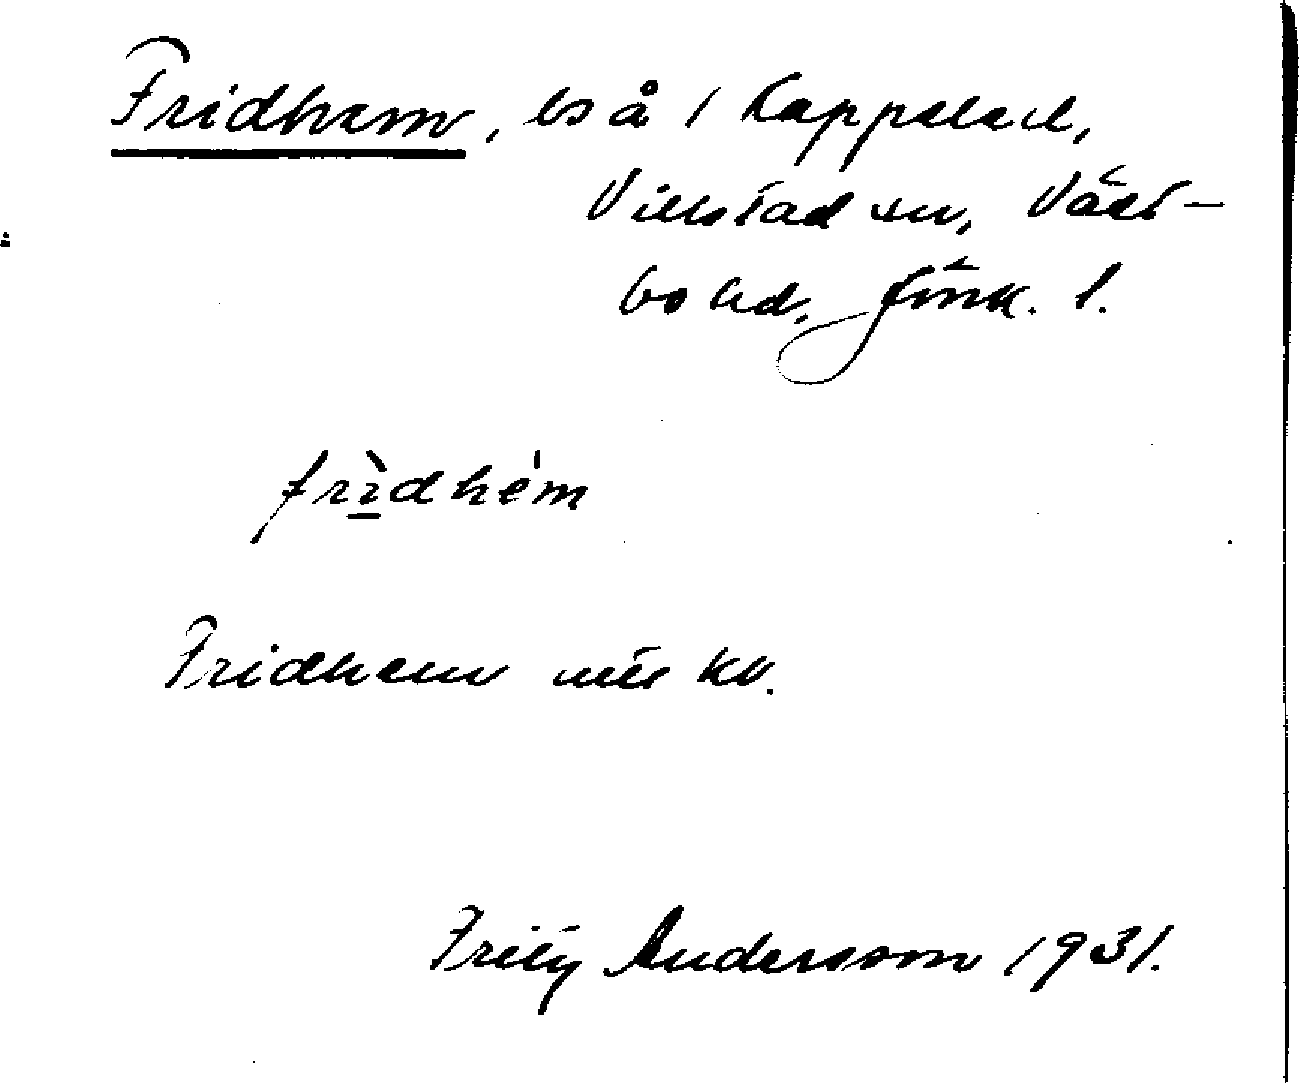 Fridhem, ls å 1 Kappeled,
Villstad sn, Väst-
bo hd, Jönk. l.
frìdhém
Fridhem utr kv.
Fritz Andersson 1931.